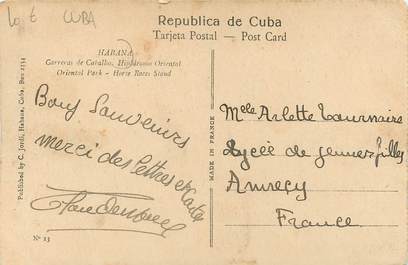 10 € CUBA
Republica de Cuba
Tarjeta Postal — Post Card
HABANA
Carreras de Caballo, Hipódromo Oriental
Oriental Park - Horse Races Stand
Bons Souvenirs
merci des lettres et cartes
Nº 23
Published by C. Jordi, Habana, Cuba, Box 2134
MADE IN FRANCE
Melle Arlette Tournaire
Lycée de jeunes filles
Annecy
France